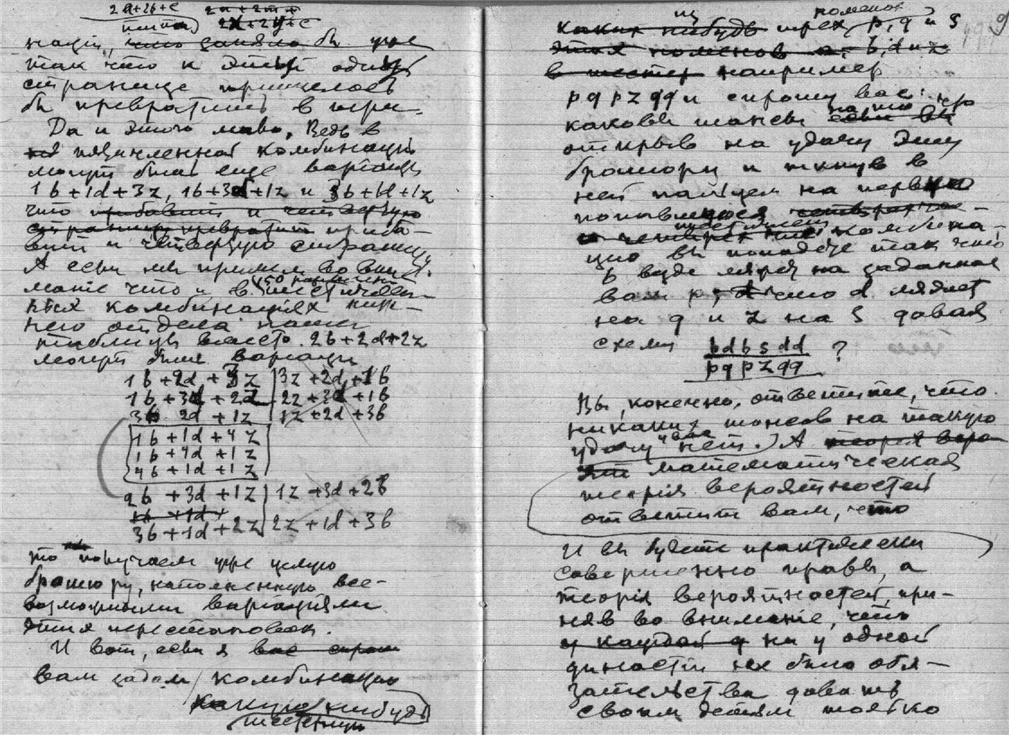 2a+2b+c 2a+2m+
2x+2y+c
нацiи, что заняло бы уже
так что и эти одну
страницу пришлось
бы превратить в три-
Да и этого мало. Ведь в
пятичленной комбинацiи
могут быть еще варiацiи
1b+1d+3z, 1b+3d+1z и 3b+1d+1z
что прибавит и четвертую
страницу превратит приба-
вит и четвертую страницу
А если мы примем во вни-
манiе что и в шестичлен-
ных комбинацiях
него отдела нашей
таблицы вместо 2b+2d+2z
могут быть варiацiи
1b+2d+3z 3z+2d+1b
1b+3d+2z 2z+3d+1b
3b 2d+1z 1z+2d+3b
1b+1d+4z
1b+4d+1z
4b+1d+1z
2b+3d+1z 1z+3d+2b
1b+1d+
3b+1d+2z 2z+1d+3b
то получаем уже целую
брошюру, наполненную все-
возможными варiацiями
этих перестановок.
И вот, если я вас спрош
вам задам комбинацiю
какую нибудь
шестерную
9
из поменов
каких нибудь трех p, q и s
этих поменов a, b, d и z
в шестер например
p q p z q q и спрошу вас:
каковы шансы на то что
открыв на удачу эту
брошюру и ткнув в
ней пальцем на первую
попавшуюся
комбина-
цiю вы попадете так что
b буде ляжет на заданное
вам p, d что d ляжет
на q и z на s давая
схему bdbsdd ?
pqpzqq
Вы, конечно, ответите, что
никаких шансов на такую
удачу нет. А теорiя веро
математическая
теорiя вероятностей
ответит вам, что
И вы будете практически
совершенно правы, а
теорiя вероятностей при-
няв во вниманiе, что
у каждой ни у одной
династiи не было обя-
зательства давать
своим детям только